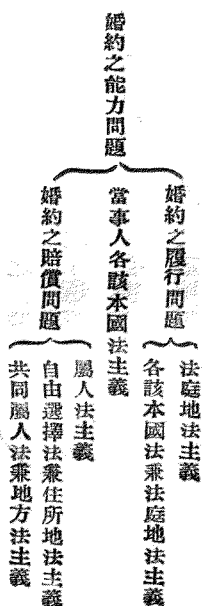 婚約之能力問題
婚約之履行問題
法庭地法主義
各該本國法兼法庭地法主義
當事人各該本國法主義
婚約之賠償問題
屬人法主義
自由選擇法兼住所地法主義
共同屬人法兼地方法主義